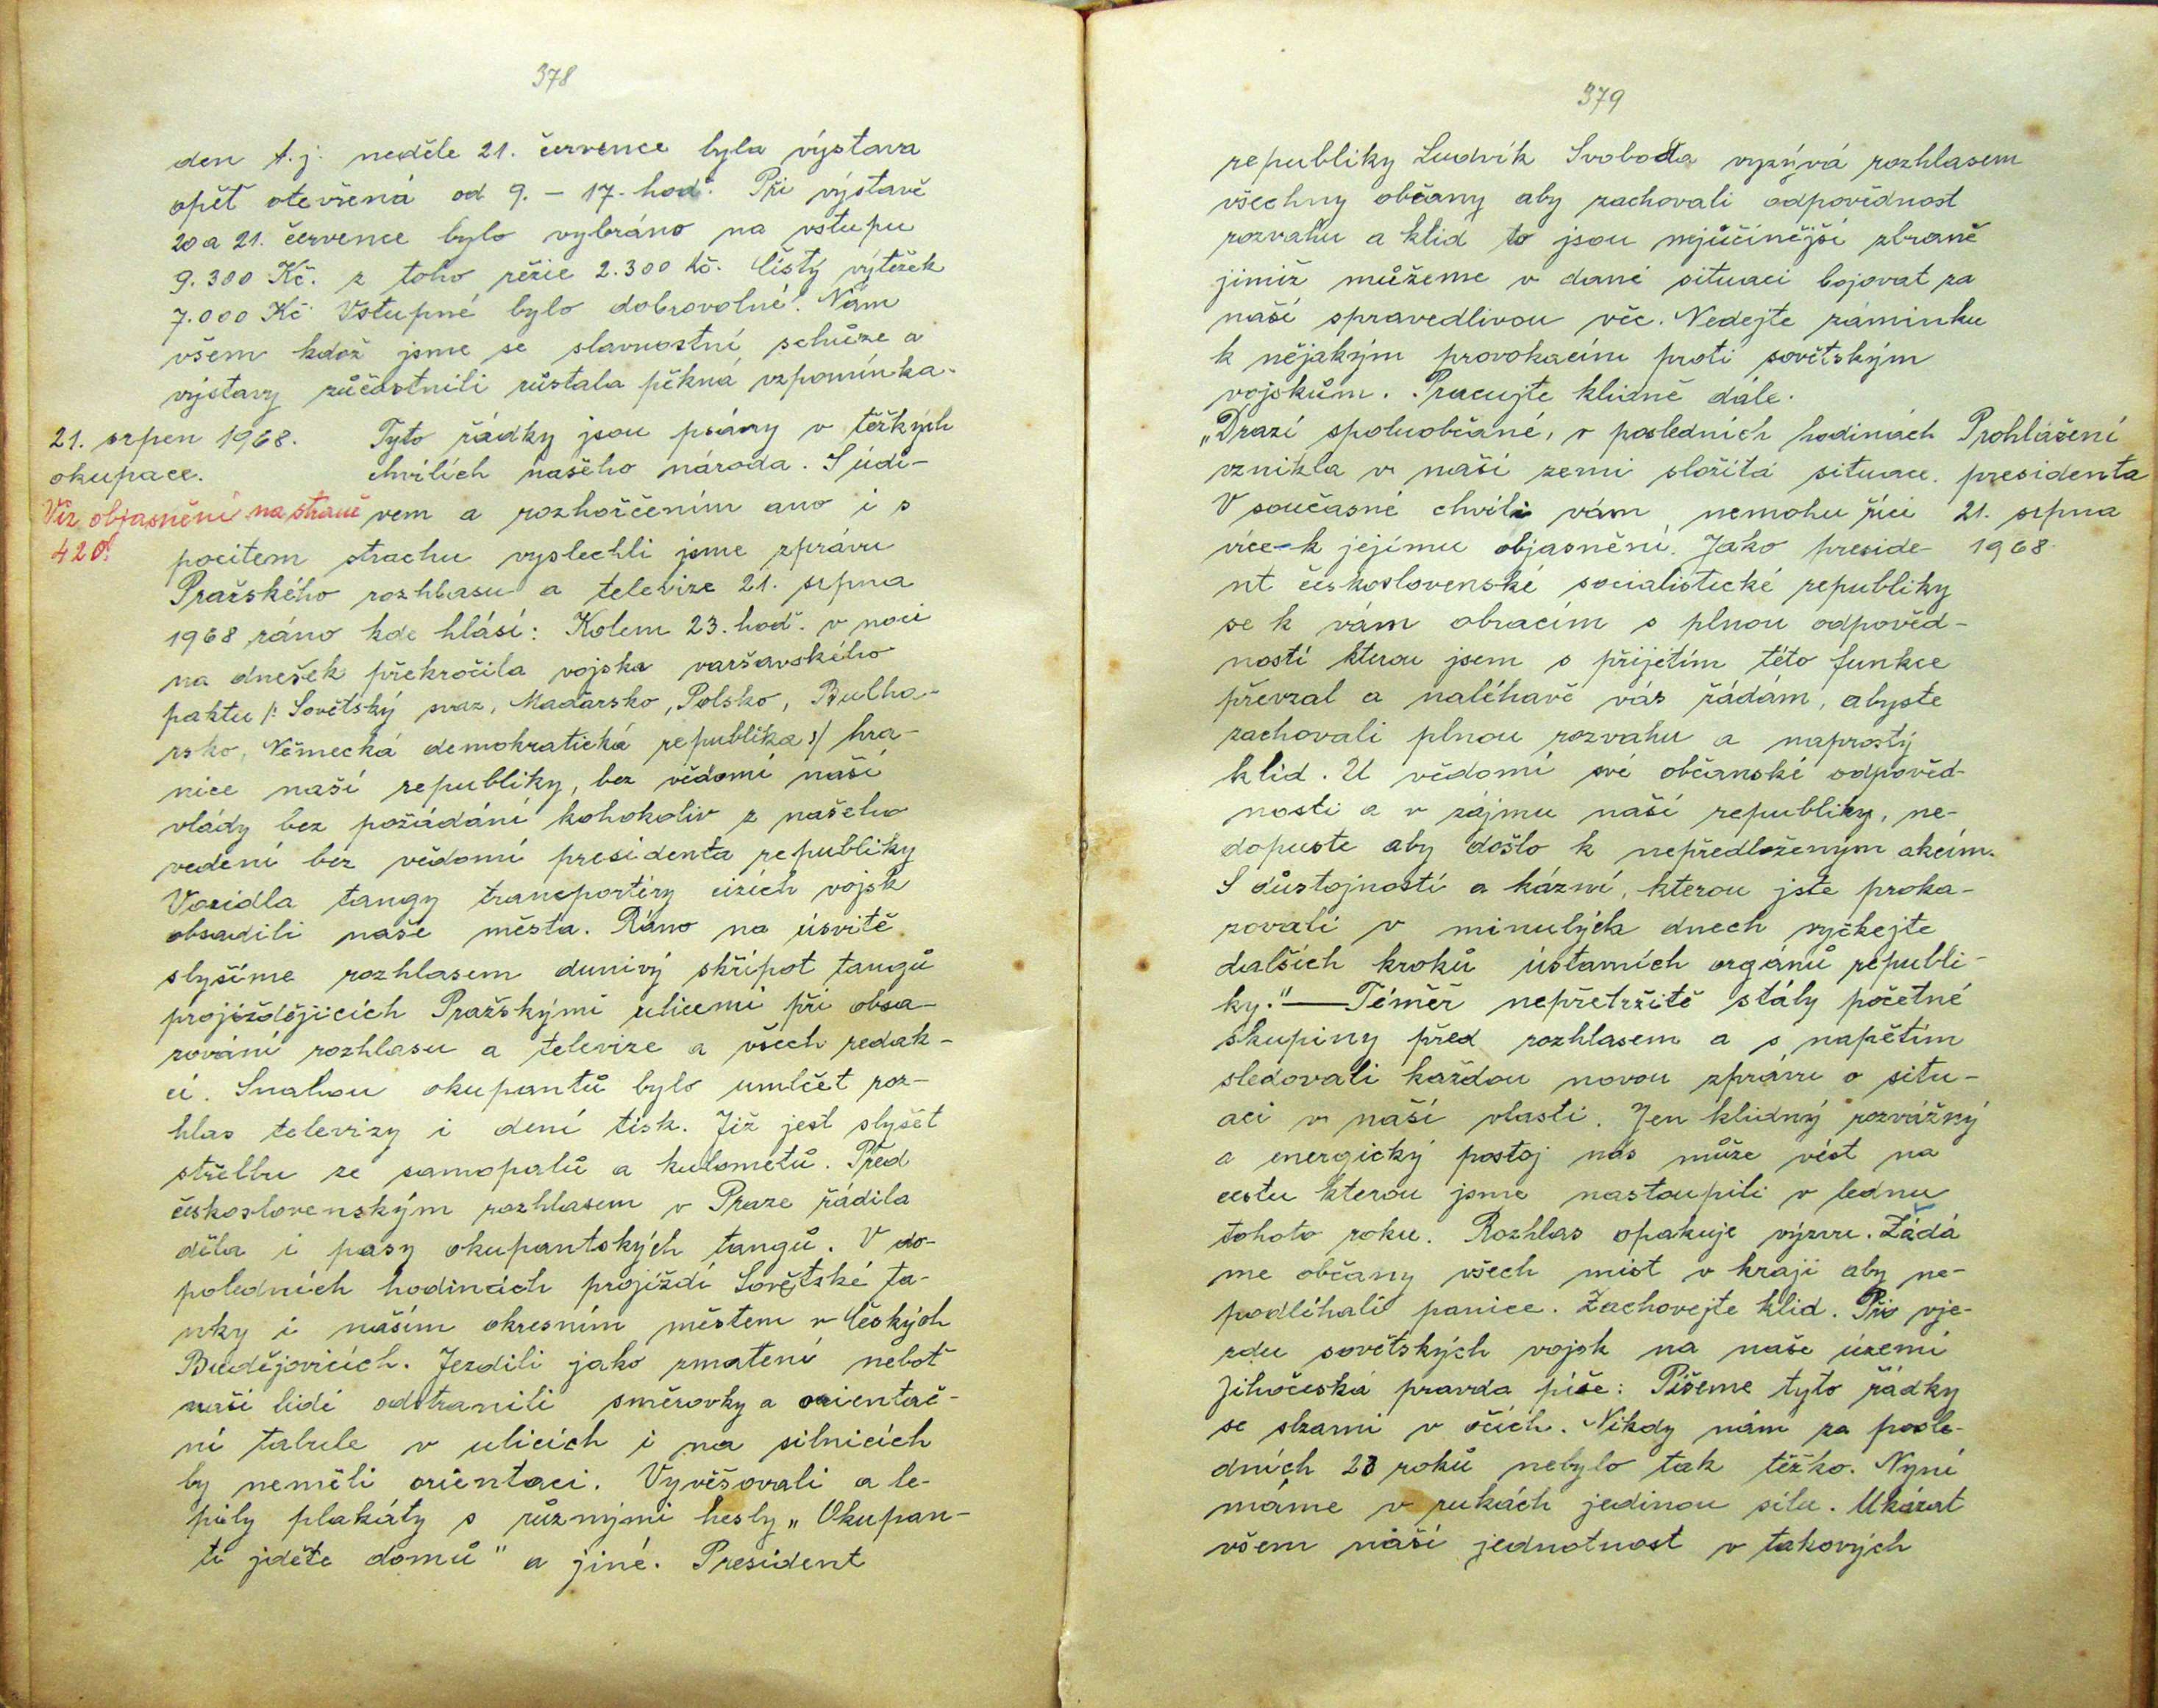 378
den t.j. neděle 21. července byla výstava
opět otevřená od 9. – 17. hod. Při výstavě
20 a 21. července bylo vybráno na vstupu
9.300 Kč. z toho režie 2.300 Kč. Čistý výtěžek
7.000 Kč Vstupné bylo dobrovolné! Nám
všem kdož jsme se slavnostní schůze a
výstavy zůčastnili zůstala pěkná vzpomínka.
21. srpen 1968.
okupace.
Viz objasnění na straně
420!
Tyto řádky jsou psány v těžkých
chvílích našeho národa. S údi-
vem a rozhořčením ano i s
pocitem strachu vyslechli jsme zprávu
Pražského rozhlasu a televize 21. srpna
1968 ráno kde hlásí: Kolem 23. hod. v noci
na dnešek překročila vojska varšavského
paktu /: Sovětský svaz, Maďarsko, Polsko, Bulha-
rsko, Německá demokratická republika :/ hra-
nice naší republiky, bez vědomí naší
vlády bez požádání kohokoliv z našeho
vedení bez vědomí presidenta republiky
Vozidla tangy transportéry cizích vojsk
obsadili naše města. Ráno na úsvitě
slyšíme rozhlasem dunivý skřípot tangů
projíždějících Pražskými ulicemi při obsa-
zování rozhlasu a televize a všech redak-
cí. Snahou okupantů bylo umlčet roz-
hlas televizy i dení tisk. Již jest slyšet
střelbu ze samopalů a kulometů. Před
československým rozhlasem v Praze řádila
děla i pasy okupantských tangů. V do-
poledních hodinách projíždí Sovětské ta-
nky i naším okresním městem v Českých
Budějovicích. Jezdili jako zmatení neboť
naši lidi odstranili směrovky a orientač-
ní tabule v ulicích i na silnicích
by neměli orientaci. Vyvěšovali a le-
pily plakáty s různými hesly „Okupan-
ti jděte domů" a jiné. President
379
republiky Ludvík Svoboda vyzývá rozhlasem
všechny občany aby zachovali odpovědnost
rozvahu a klid to jsou nejůčinější zbraně
jimiž můžeme v dané situaci bojovat za
naší spravedlivou věc. Nedejte záminku
k nějakým provokacím proti sovětským
vojskům. Pracujte klidně dále.
„Drazí spoluobčané, v posledních hodinách
vznikla v naší zemi složitá situace.
V současné chvíli vám nemohu říci
více k jejímu objasnění. Jako preside-
nt československé socialistické republiky
se k vám obracím s plnou odpověd-
ností kterou jsem s přijetím této funkce
převzal a naléhavě vás řádám, abyste
zachovali plnou rozvahu a naprostý
klid. U vědomí své občanské odpověd-
nosti a v zájmu naší republiky, ne-
dopuste aby došlo k nepředloženým akcím.
S důstojností a kázní, kterou jste proka-
zovali v minulých dnech vyčkejte
dalších kroků ústavních orgánů republi-
ky." — Téměř nepřetržitě stály početné
skupiny před rozhlasem a s napětím
sledovali každou novou zprávu o situ-
aci v naší vlasti. Jen klidný rozvážný
a energický postoj nás může vést na
cestu kterou jsme nastoupili v lednu
tohoto roku. Rozhlas opakuje výzvu. Žádá
me občany všech míst v kraji aby ne-
podlíhali panice. Zachovejte klid. Při vje-
zdu sovětských vojsk na naše území
Jihočeská pravda píše: Píšeme tyto řádky
se slzami v očích. Nikdy nám za posle-
dních 23 roků nebylo tak těžko. Nyní
máme v rukách jedinou sílu. Ukázat
všem naší jednotnost v takových
Prohlášení
presidenta
21. srpna
1968.